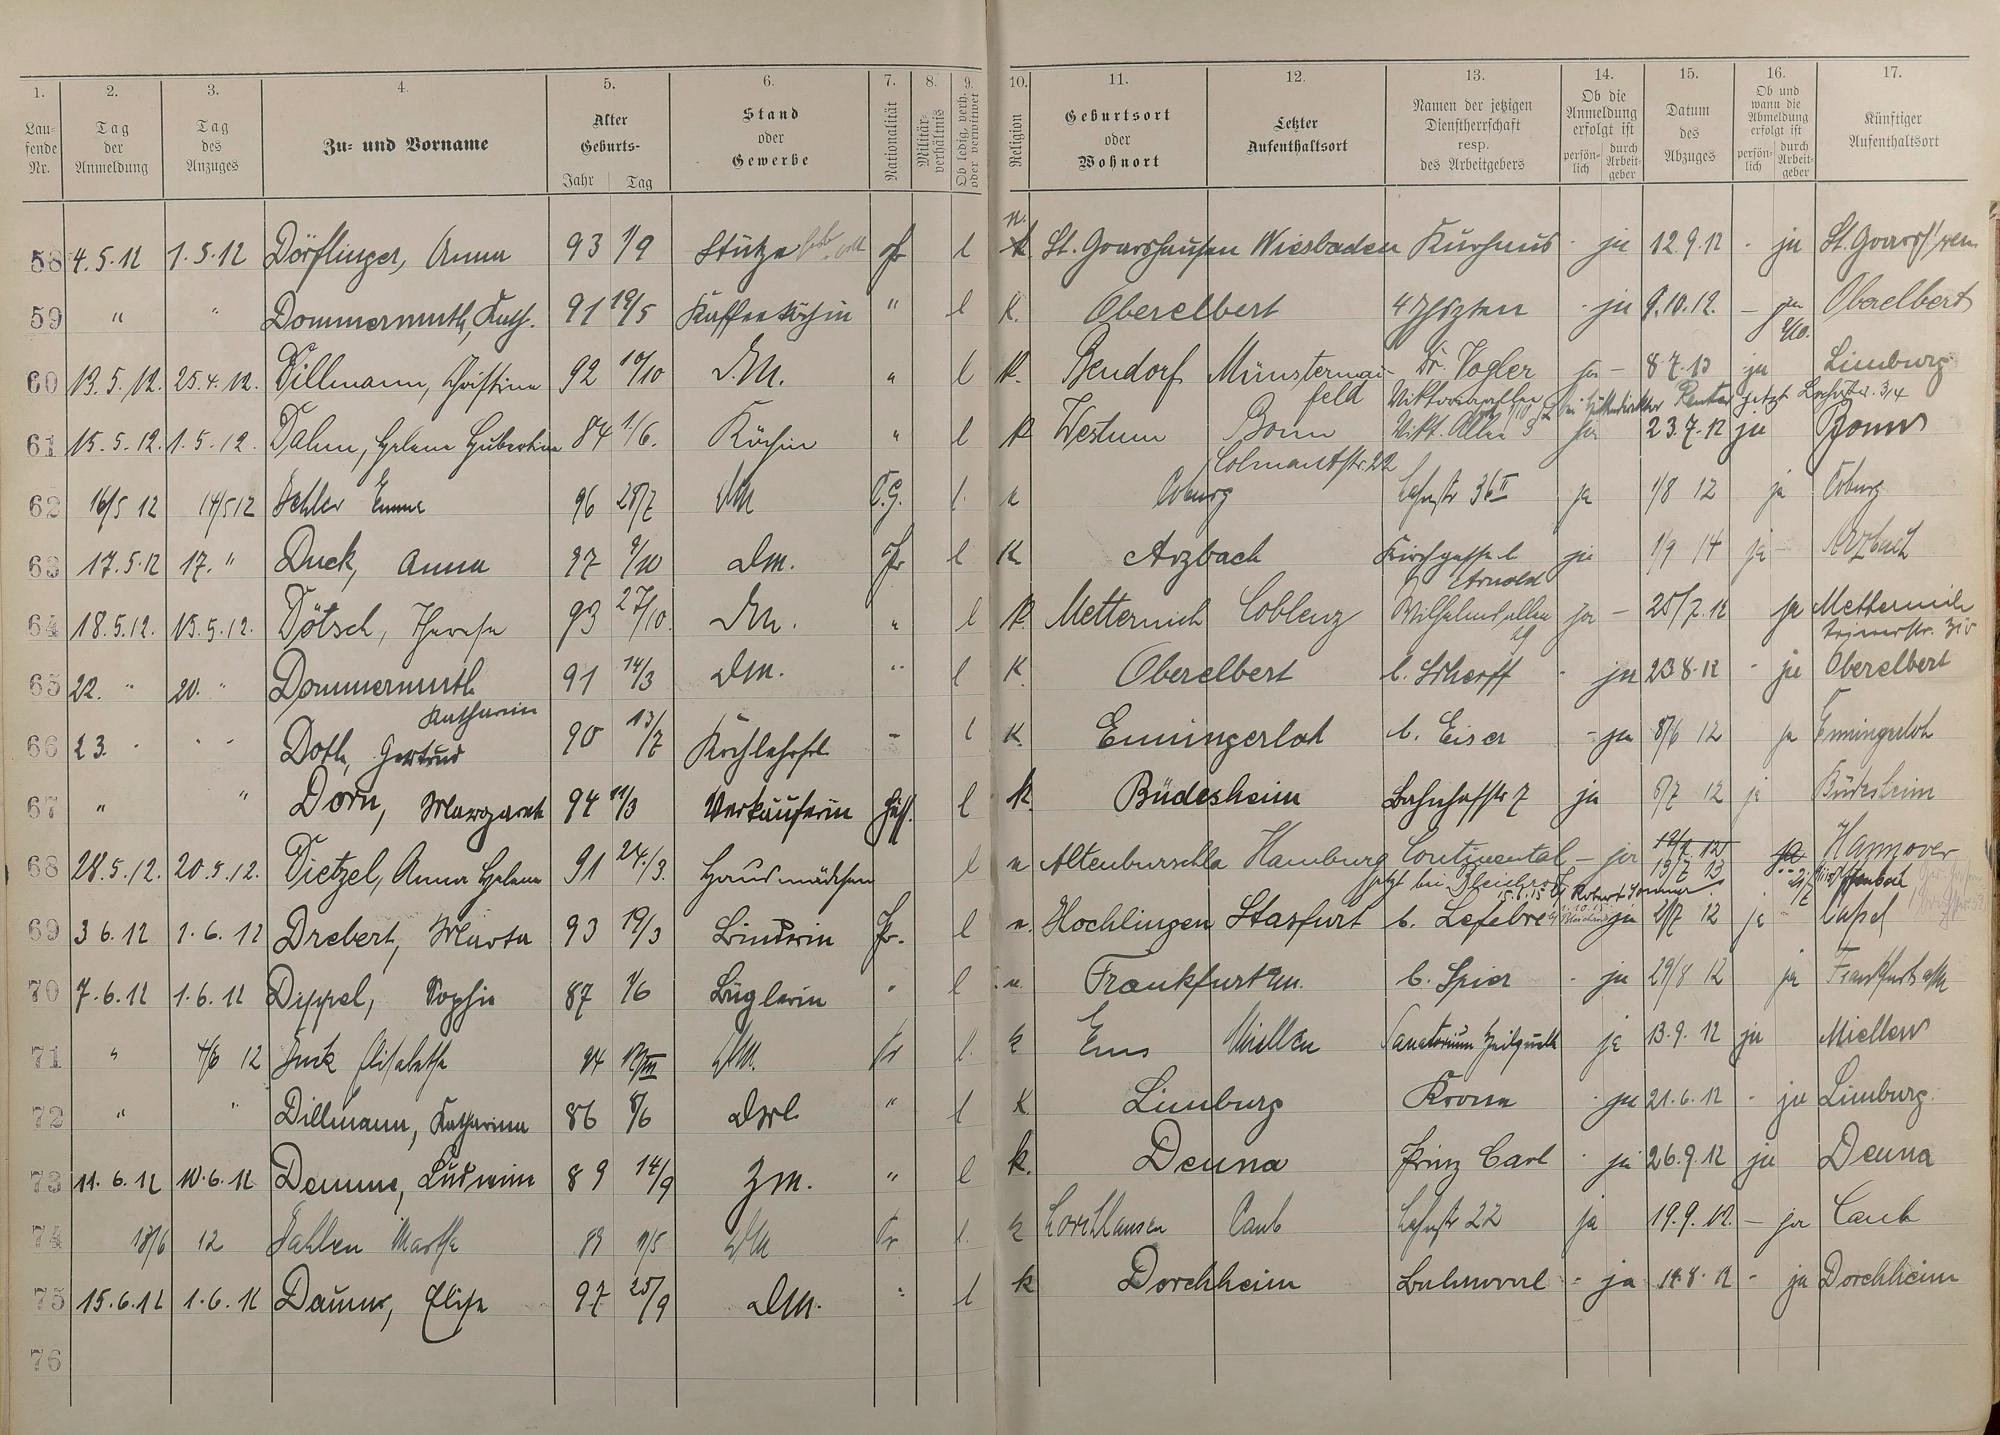 1. 2. 3. 4. 5. 6. 7. 8. 9. 10. 11. 12. 13. 14. 15. 16. 17.
Lau-fende Nr. Tag der Anmeldung Tag des Anzuges Zu- und Vorname Alter Geburts- Jahr Tag Stand oder Gewerbe Nationalität Militär-verhältnis Ob ledig, verh. oder verwitwet Religion Geburtsort oder Wohnort Letzter Aufenthaltsort Namen der jetzigen Dienstherrschaft resp. des Arbeitgebers Ob die Anmeldung erfolgt ist persön-lich durch Arbeit-geber Datum des Abzuges Ob und wann die Abmeldung erfolgt ist persön-lich durch Arbeit-geber Künftiger Aufenthaltsort
58 4.5.12 1.5.12 Dörflinger, Anna 93 1/9 Stütze l St. Goarshausen Wiesbaden Kurhaus - ja 12.9.12 - ja
59 " " Dommermuth, Kath. 91 19/5 Kaffeeköchin " l K. Oberelbert 4 Jhszten - ja 9.10.12. - Oberelbert
60 13.5.12. 25.4.12. Dillmann, Christina 92 10/10 D.M. " l K. Bendorf Münstermai-feld Dr. Vogler ja - 8.7.13 ja Limburg
61 15.5.12. 1.5.12. Dahm, Helene Hubertine 84 1/6. Köchin " l K Westum Bonn Colmantstr. 22 Vikt. Allee 5 ja 23.7.12 ja Bonn
62 16/5 12 14/5 12 Dehler Emma 96 28/7 DM C.G. l. Coburg Lahnstr 36 II ja 1/8 12 ja Coburg
63 17.5.12 17. " Duck, Anna 97 9/10 Dm. Pr l K Arzbach Kirchgasse 6 ja 1/9 14 ja - Arzbach
64 18.5.12. 15.5.12. Dötsch, Therese 93 27/10. Dm. " l K. Metternich Coblenz Arnold Wilhelmsallee ja - 25/7.12 ja Metternich Trierstr.
65 22. " 20. " Dommermuth Katharina 91 14/3 Dm. " l K. Oberelbert b. Scherff - ja 23.8.12 - ja Oberelbert
66 23. - - - Doth, Gertrud 90 13/7 Kochlehrfrl - l K. Enningerloh b. Eiser - ja 8/6 12 ja Enningerloh
67 " " Dorn, Margareth 94 11/3 Verkäuferin Hess. l K. Büdesheim Bahnhofstr 7 ja 5/7 12 ja Büdesheim
68 28.5.12. 20.5.12. Dietzel, Anna Helene 91 24./3. Hausmädchen l Altenburschla Hamburg Continental - ja 13/7 13 ja Hannover
jetzt bei
69 3 6.12 1.6.12 Drebert, Marta 93 19/3 Binderin Pr. l Hochlingen Stasfurt b. Lefebre ja 2/7 12 ja Cassel
70 7.6.12 1.6.12 Dippel, Sophie 87 1/6 Büglerin " l Frankfurt a/m. b. Spier - ja 29/8 12 ja Frankfurt a/M
71 " 4/6 12 Duck Elisabeth 94 DM. Pr l. k Ems Miellen Sanatorium Heilquelle ja 13.9.12 ja Miellen
72 " " Dillmann, Katharina 86 8/6 " l K Limburg Krone - ja 21.6.12 - ja Limburg
73 11.6.12 10.6.12 Demme, Ludwina 89 14/9 Zm. " l K. Deuna Prinz Carl - ja 26.9.12 ja Deuna
74 13/6 12 Dahlen Martha 89 DM Pr l. k Lorchhausen Caub Lahnstr 22 ja 19.9.12. - ja Caub
75 15.6.12 1.6.12 Daum, Elise 97 25/9 DM. " l K Dorchheim - ja 14.8.12 - ja Dorchheim
76